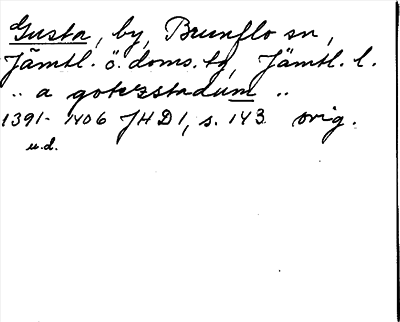 Gusta, by, Brunflo sn,
Jämtl. ö. doms. tg, Jämtl. l.
.. a goterstadum ..
1391-1406 JHD 1, s. 143 orig.
u.d.